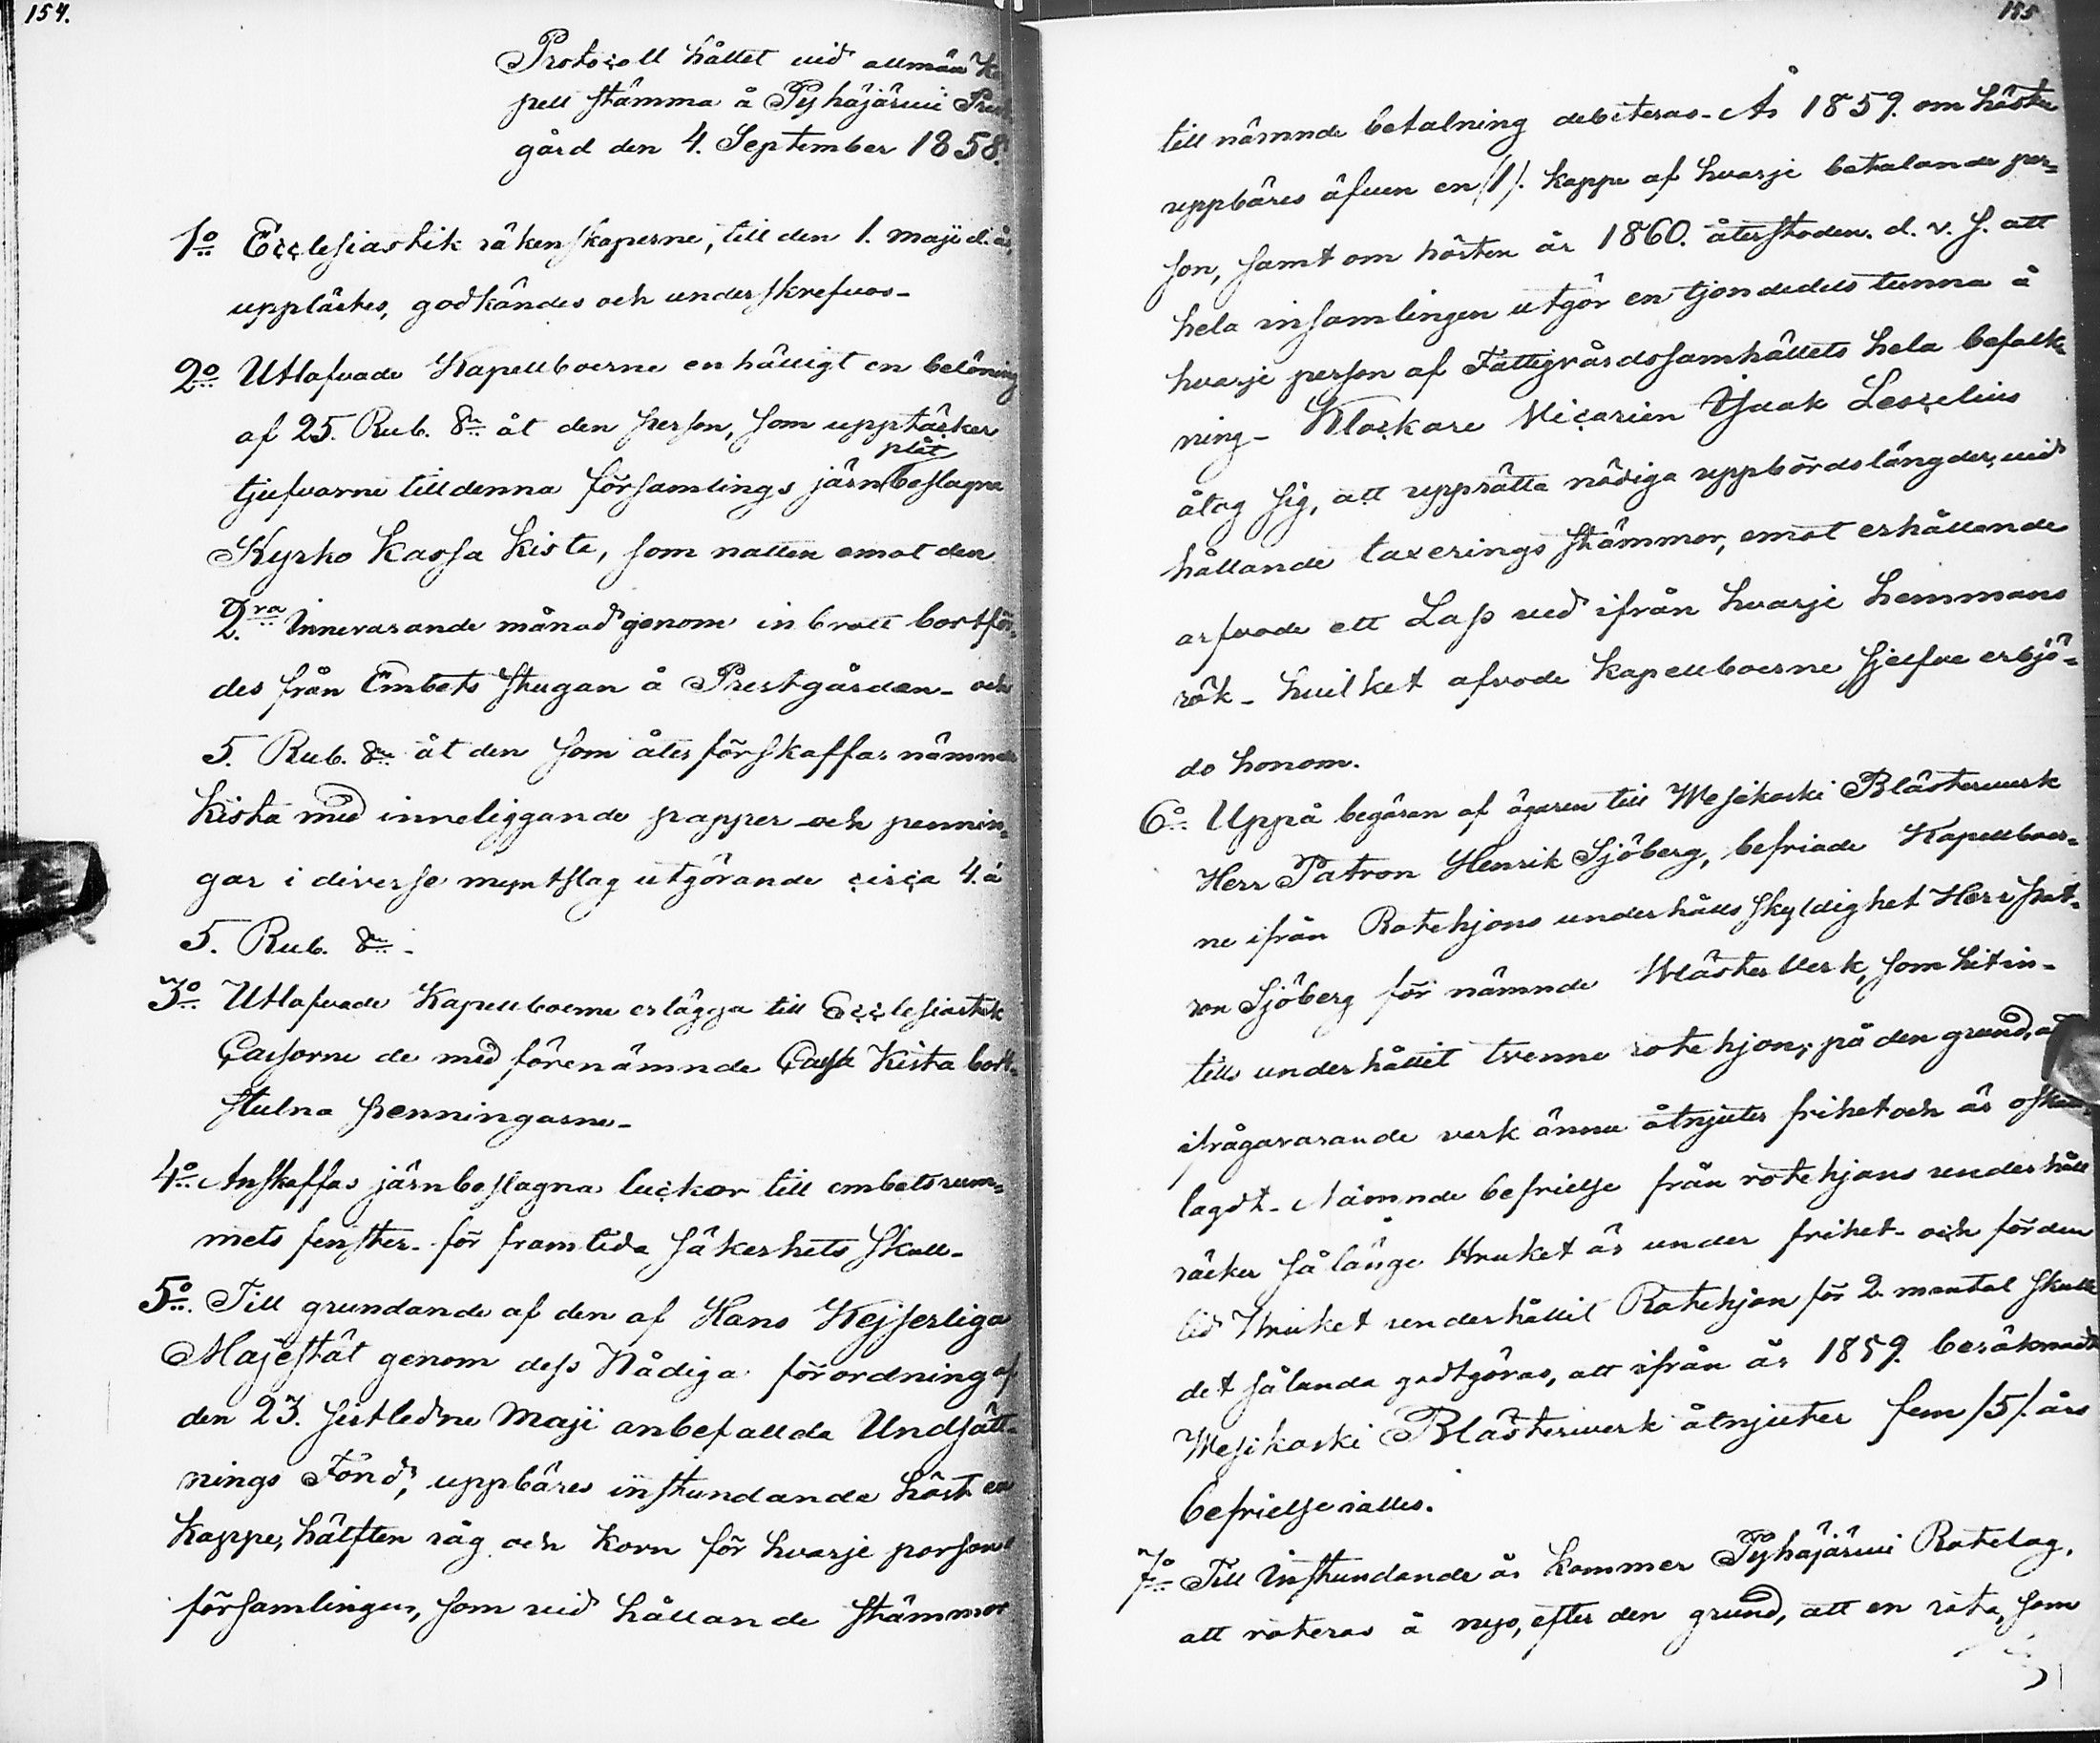 154.
Protocoll hållet vid allmän Ka
pell stämma å Pyhäjärvi Prest
gård den 4. September 1858.
1º Ecclesiastik räkenskaperne, till den 1. maji d. år,
upplästes, godkändes och underskrefvos-
2º Utlofvade Kapellboerne enhälligt en belöning
af 25. Rub. Sr. åt den person, som upptäcker
plåt
tjufvarne till denna församlings järn beslagna
Kyrko Kassa Kista, som natten emot den
2.ra innevarande månad genom inbrott bortför-
des från Embets stugan å Prestgården- och
5. Rub. Sr. åt den som återförskaffar nämnde
Kista med inneliggande papper och pennin-
gar i diverse myntslag utgörande circa 4. á
5. Rub. Sr.-
3º Utlofvade Kapellboerne erlägga till Ecclesiastik
Cassorne de med förenämnde Cassa Kista bort-
stulna penningarne-
4º Anskaffas järnbeslagna luckor till embetsrum-
mets fenster- för framtida säkerhets skull-
5º. Till grundande af den af Hans Kejserliga
Majestät genom dess Nådiga förordning af
den 23. sistledne Maji anbefallda Undsätt-
nings Fond, uppbäres instundande höst en
Kappe, hälften råg och korn för hvarje person i
församlingen, som vid hållande stämmor
155
till nämnde betalning debiteras- År 1859. om hösten
uppbäres äfven en /1/. kappe af hvarje betalande per-
son, samt om hösten år 1860. återstoden. d. v. s. att
hela insamlingen utgör en tjondedels tunna å
hvarje person af Fattigvårdssamhällets hela befolk-
ning- Klockare Vicarien Isaak Lescelius
åtog sig, att upprätta nödiga uppbördslängder, vid
hållande taxerings stämmor, emot erhållande
arfvode ett Lass ved ifrån hvarje hemmans
rök- hvilket afvode kapellboerne sjelfve erbjö-
do honom.
6º. Uppå begäran af ägaren till Wesikoski Bläster verk
Herr Patron Henrik Sjöberg, befriade Kapellboer-
ne ifrån Rotehjons underhålls skyldighet Herr Pat-
ron Sjöberg för nämnde Bläster Verk, som hitin-
tills underhållit tvenne rotehjon; på den grund, att
ifrågavarande verk ännu åtnjuter frihet och är oskatt-
lagdt- Nämnde befrielse från rotehjons underhåll
räcker så länge Bruket är under frihet- och för den
tid Bruket underhållit Rotehjon för 2. mantal skulle
det sålunda godtgöras, att ifrån år 1859. beräknadt
Wesikoski Blästerverk åtnjuter fem /5/. års
befrielse
7º Till instundande år kommer Pyhäjärvi Rotelag,
att roteras å nyo, efter den grund, att en rota, som